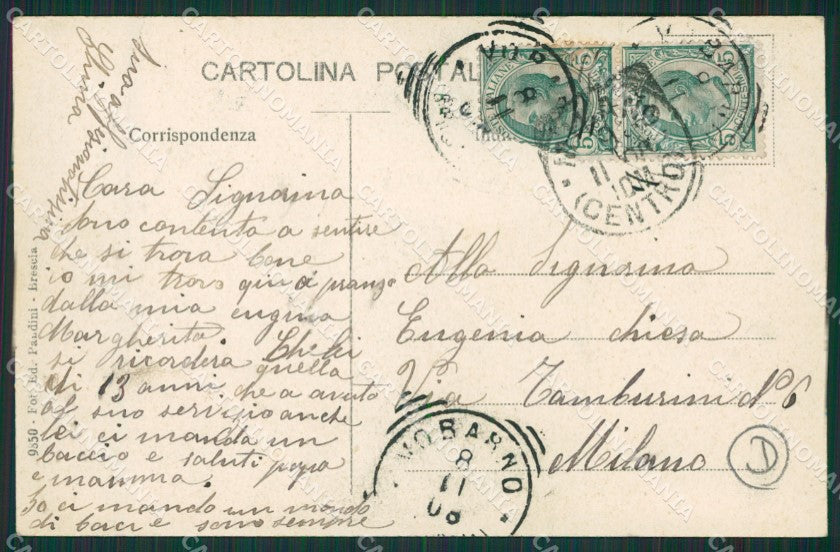 CARTOLINA POSTAL
Corrispondenza
Cara Signorina
sono contenta a sentire
che si trova bene
io mi trovo qui a pranzo
dalla mia cugina
Margherita. Chi lei
si ricorderà quella
di 13 anni che a avuto
al suo servizio anche
lei ci manda un
baccio e saluti papa
e mamma.
Io ci mando un mondo
di baci e sono sempre
sua aff
Alla Signorina
Eugenia Chiesa
Via Tamburini N° 6
Milano
D
9850 - Fot. Ed. Pandini - Brescia
VOBARNO
8
11
08
MILANO
11
(CENTRO)
CARTOLINOMANIA